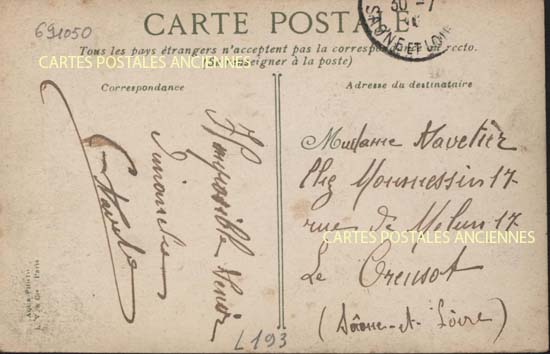 691050
CARTE POSTALE
30 -7
SAONE ET LOIRE
Tous les pays étrangers n'acceptent pas la correspondance au recto.
(Se renseigner à la poste)
CARTES POSTALES ANCIENNES
Correspondance
Adresse du destinataire
Impossible venir
Dimanche
Madame Navetier
Chez Monnessin 17
rue de Melun 17
CARTES POSTALES ANCIENNES
Le Creusot
(Saône-et-Loire)
Aqua Photo
L. V. & Cie Paris
L193